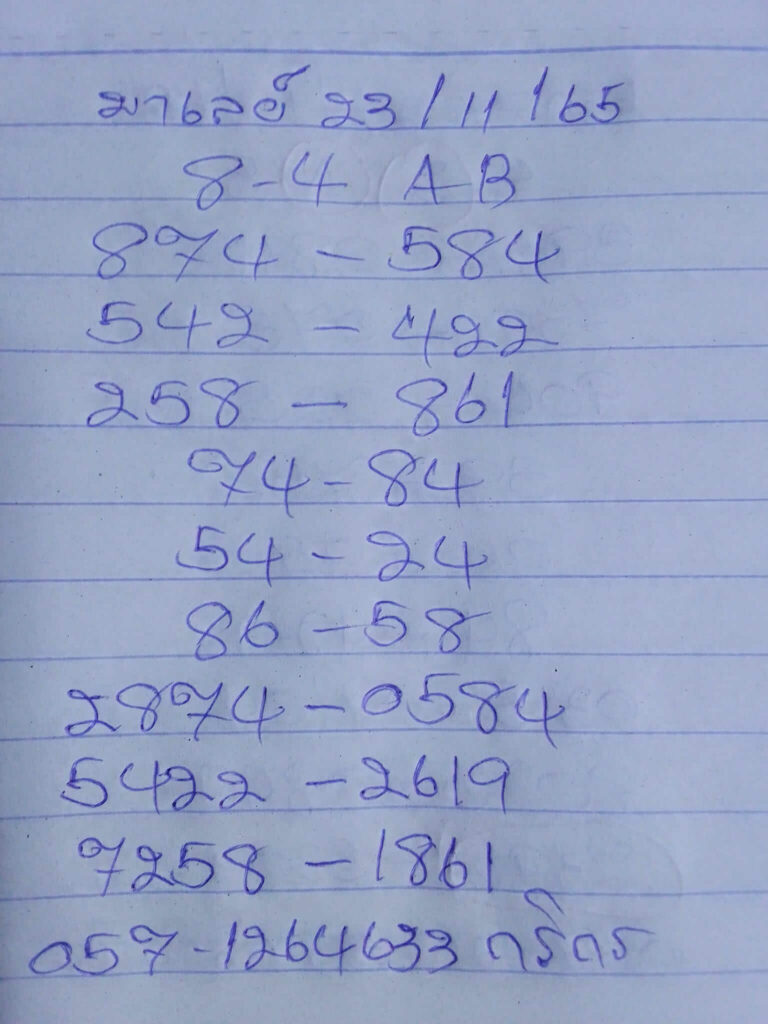 มาเลย์ 23/11/65
8-4 AB
874 - 584
542 - 422
258 - 861
74 - 84
54 - 24
86 - 58
2874 - 0584
5422 - 2619
7258 - 1861
057-1264633